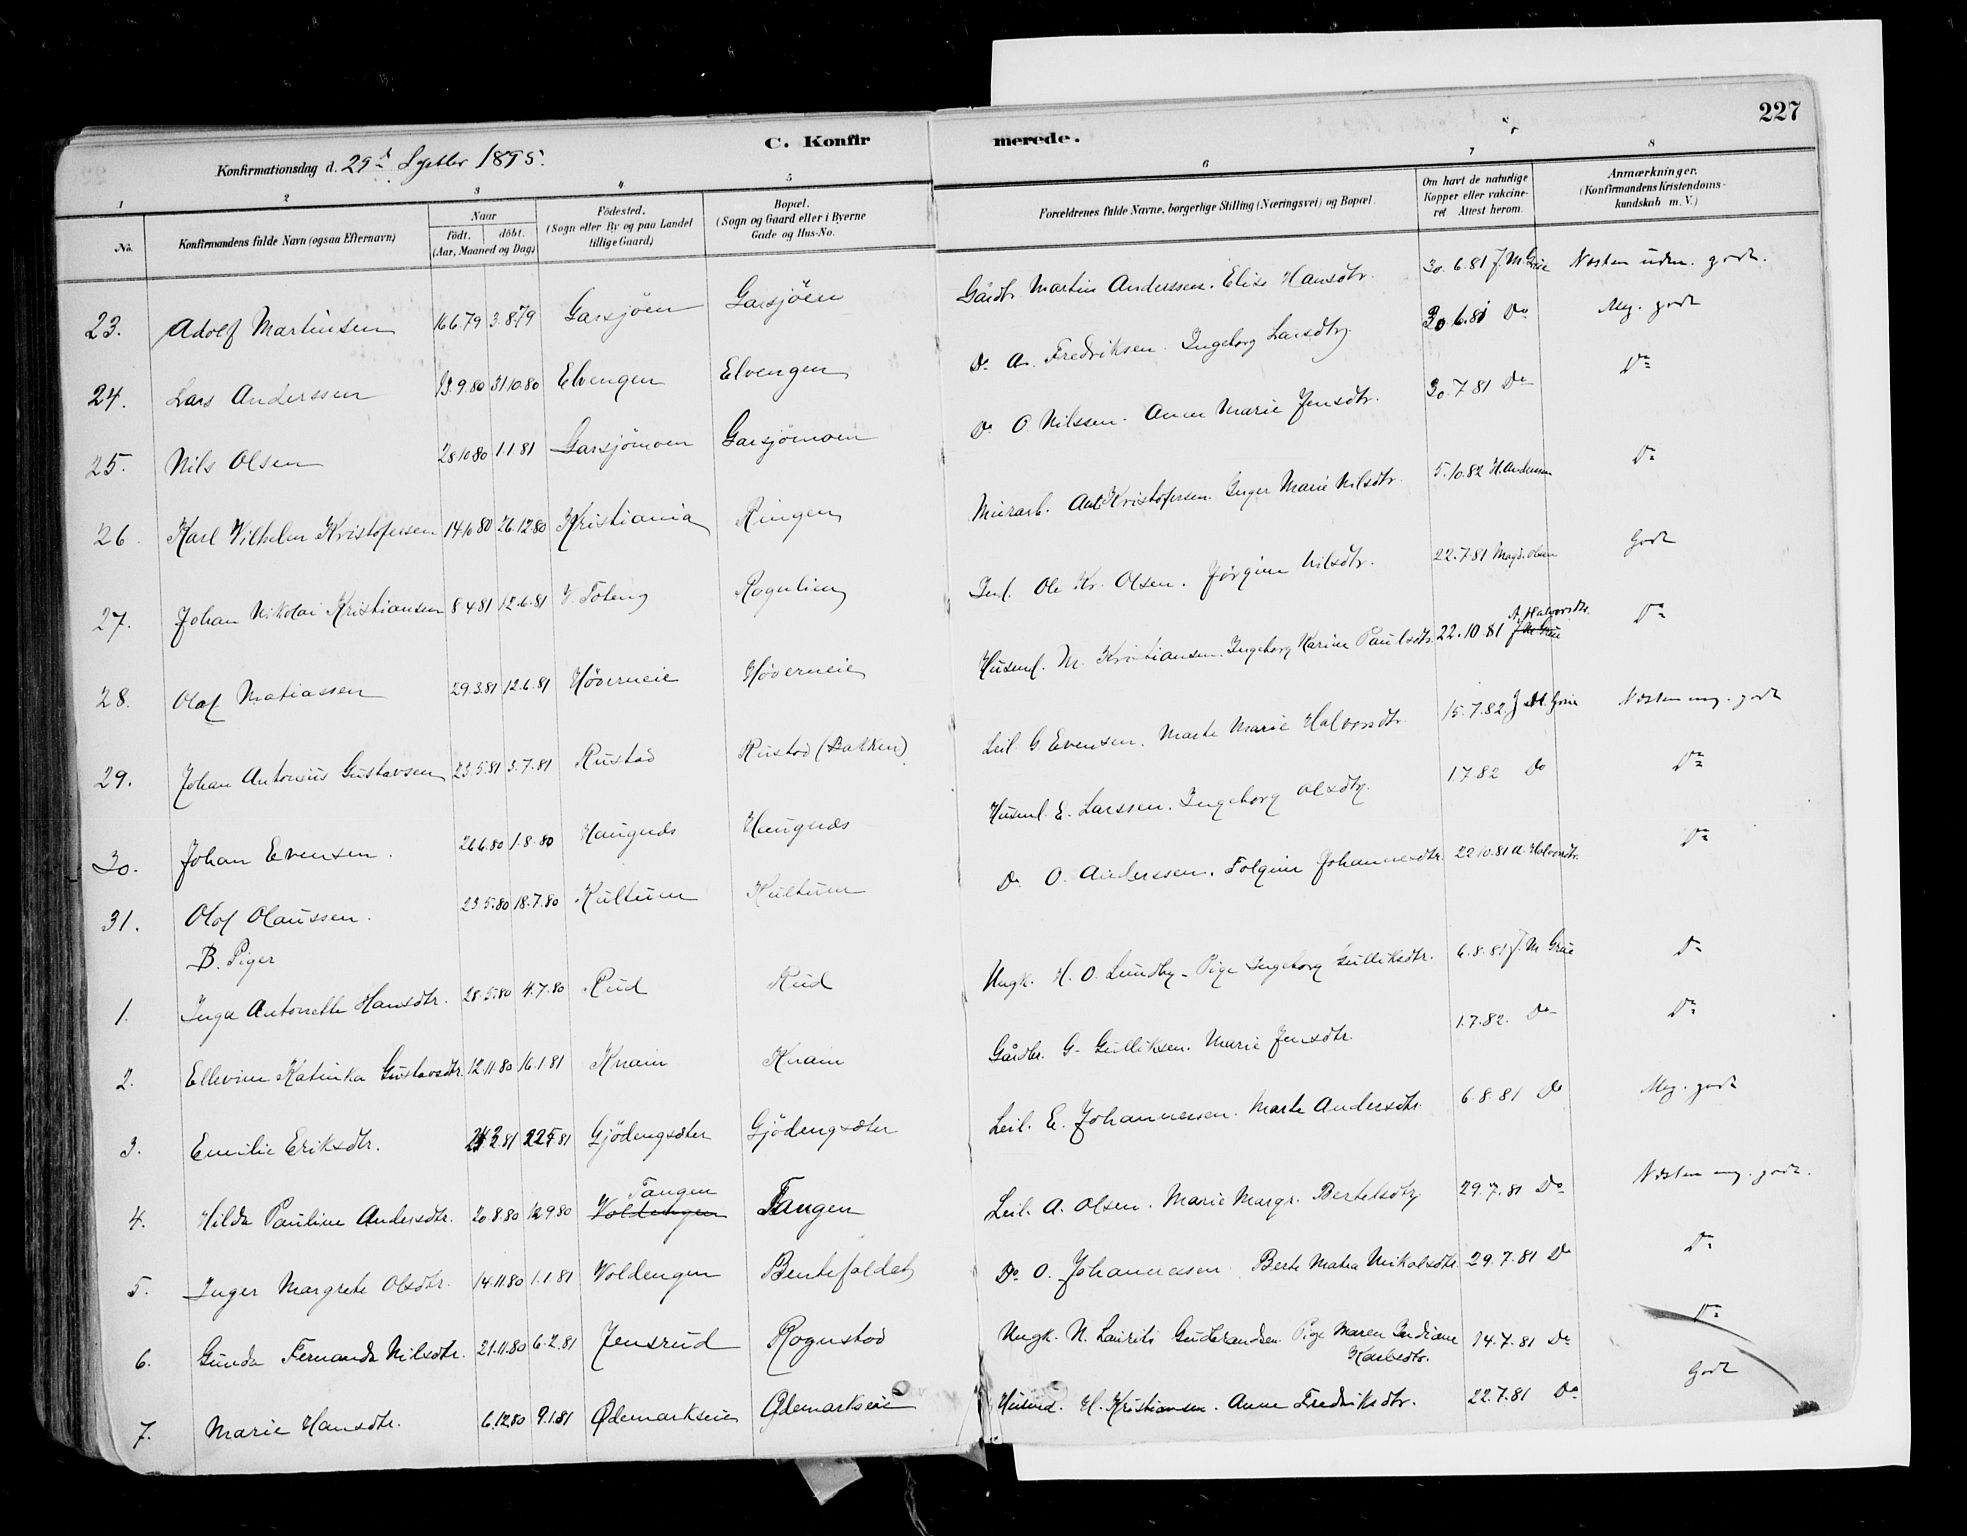 227
C. Konfirmerede.
Konfirmationsdag d. 29d Septbr 1895.
1 2 3 4 5 6 7 8
No. Konfirmandens fulde Navn (ogsaa Efternavn) Naar født. døbt. (Aar, Maaned og Dag) Fødested. (Sogn eller By og paa Landet tillige Gaard) Bopæl. (Sogn og Gaard eller i Byerne Gade og Hus-No. Forældrenes fulde Navne, borgerlige Stilling (Næringsvei) og Bopæl. Om havt de naturlige Kopper eller vakcineret Attest herom. Anmærkninger. (Konfirmandens Kristendomskundskab m. V.)
23. Adolf Martinsen 16.6.79 3.8.79 Garsjöen Garsjöen Gårdbr. Martin Anderssen. Elise Hansdtr. 30.6.81 J. M. Grüe Næsten udm. godt.
24. Lars Anderssen 13.9.80 31.10.80 Elvengen Elvengen Do A. Fredriksen. Ingeborg Larsdtr. 30.6.81 Do Meg. godt
25. Nils Olsen 28.10.80 1.1.81 Garsjömoen Garsjömoen Do O. Nilssen. Anne Marie Jensdtr. 30.7.81 Do Do
26. Karl Vilhelm Kristofersen 14.10.80 26.12.80 Kristiania Ringen Murarb. Ant. Kristofersen. Inger Marie Nilsdtr. 5.10.82 H. Anderssen Do
27. Johan Nikolai Kristiansen 8.4.81 12.6.81 V. Toten Rognlien Inl. Ole Kr. Olsen. Jørgine Nilsdtr. 22.7.81 Magd. Olsen Godt
28. Olaf Matiassen 29.3.81 12.6.81 Høverneie Høverneie Husml. M. Kristiansen. Ingeborg Karine Paulsdtr. 22.10.81 A. Halvorsdtr. J. M. Grüe Do
29. Johan Antonius Gustavsen 23.5.81 3.7.81 Rustad Rustad (Bakken) Leil. G. Evensen. Marte Marie Halvorsdtr. 15.7.82 J. M. Grüe Næsten meg. godt
30. Johan Evensen. 26.6.80 1.8.80 Haugnæs Haugnæs Husml. E. Larssen. Ingeborg Olsdtr. 1.7.82 Do Do
31. Olof Olaussen. 23.5.80 18.7.80 Kultum Kultum Do O. Anderssen. Folgine Johannesdtr. 22.10.81 A. Halvorsdtr. Do
B. Piger
1. Inga Antonette Hansdtr. 28.5.80 4.7.80 Rud Rud Ungk. H. O. Lundby - Pige Ingeborg Gulliksdtr. 6.8.81 J. M. Grüe Do
2. Ellevine Katinka Gustavsdtr. 12.11.80 16.1.81 Knain Knain Gårdbr. G. Gulliksen. Marie Jensdtr. 1.7.82. Do Do
3. Emilie Eriksdtr. 22.5.81 Gjödengsæter Gjödengsæter Leil. E. Johannessen. Marte Andersdtr. 6.8.81 Do Meg. godt
4. Hilda Pauline Andersdtr. 20.8.80 12.9.80 Tangen Voldengen Tangen Leil. A. Olsen. Marie Margr. Bertelsdtr. 29.7.81 Do Næsten meg. godt.
5. Inger Margrete Olsdtr. 14.11.80 1.1.81 Voldengen Bentefaldet Do O. Johannessen. Berte Matea Nikolsdtr. 29.7.81 Do Do
6. Gunda Fernanda Nilsdtr. 21.11.80 6.2.81 Jensrud Rognstad Ungk. N. Lauriti Gudbrandsen. Pige Maren Indiane Karlsdtr. 14.7.81 Do Do
7. Marie Hansdtr. 6.12.80 9.1.81 Ødemarkseie Ødemarkseie Husmd. H. Kristiansen. Anne Fredriksdtr. 22.7.81 Do Godt